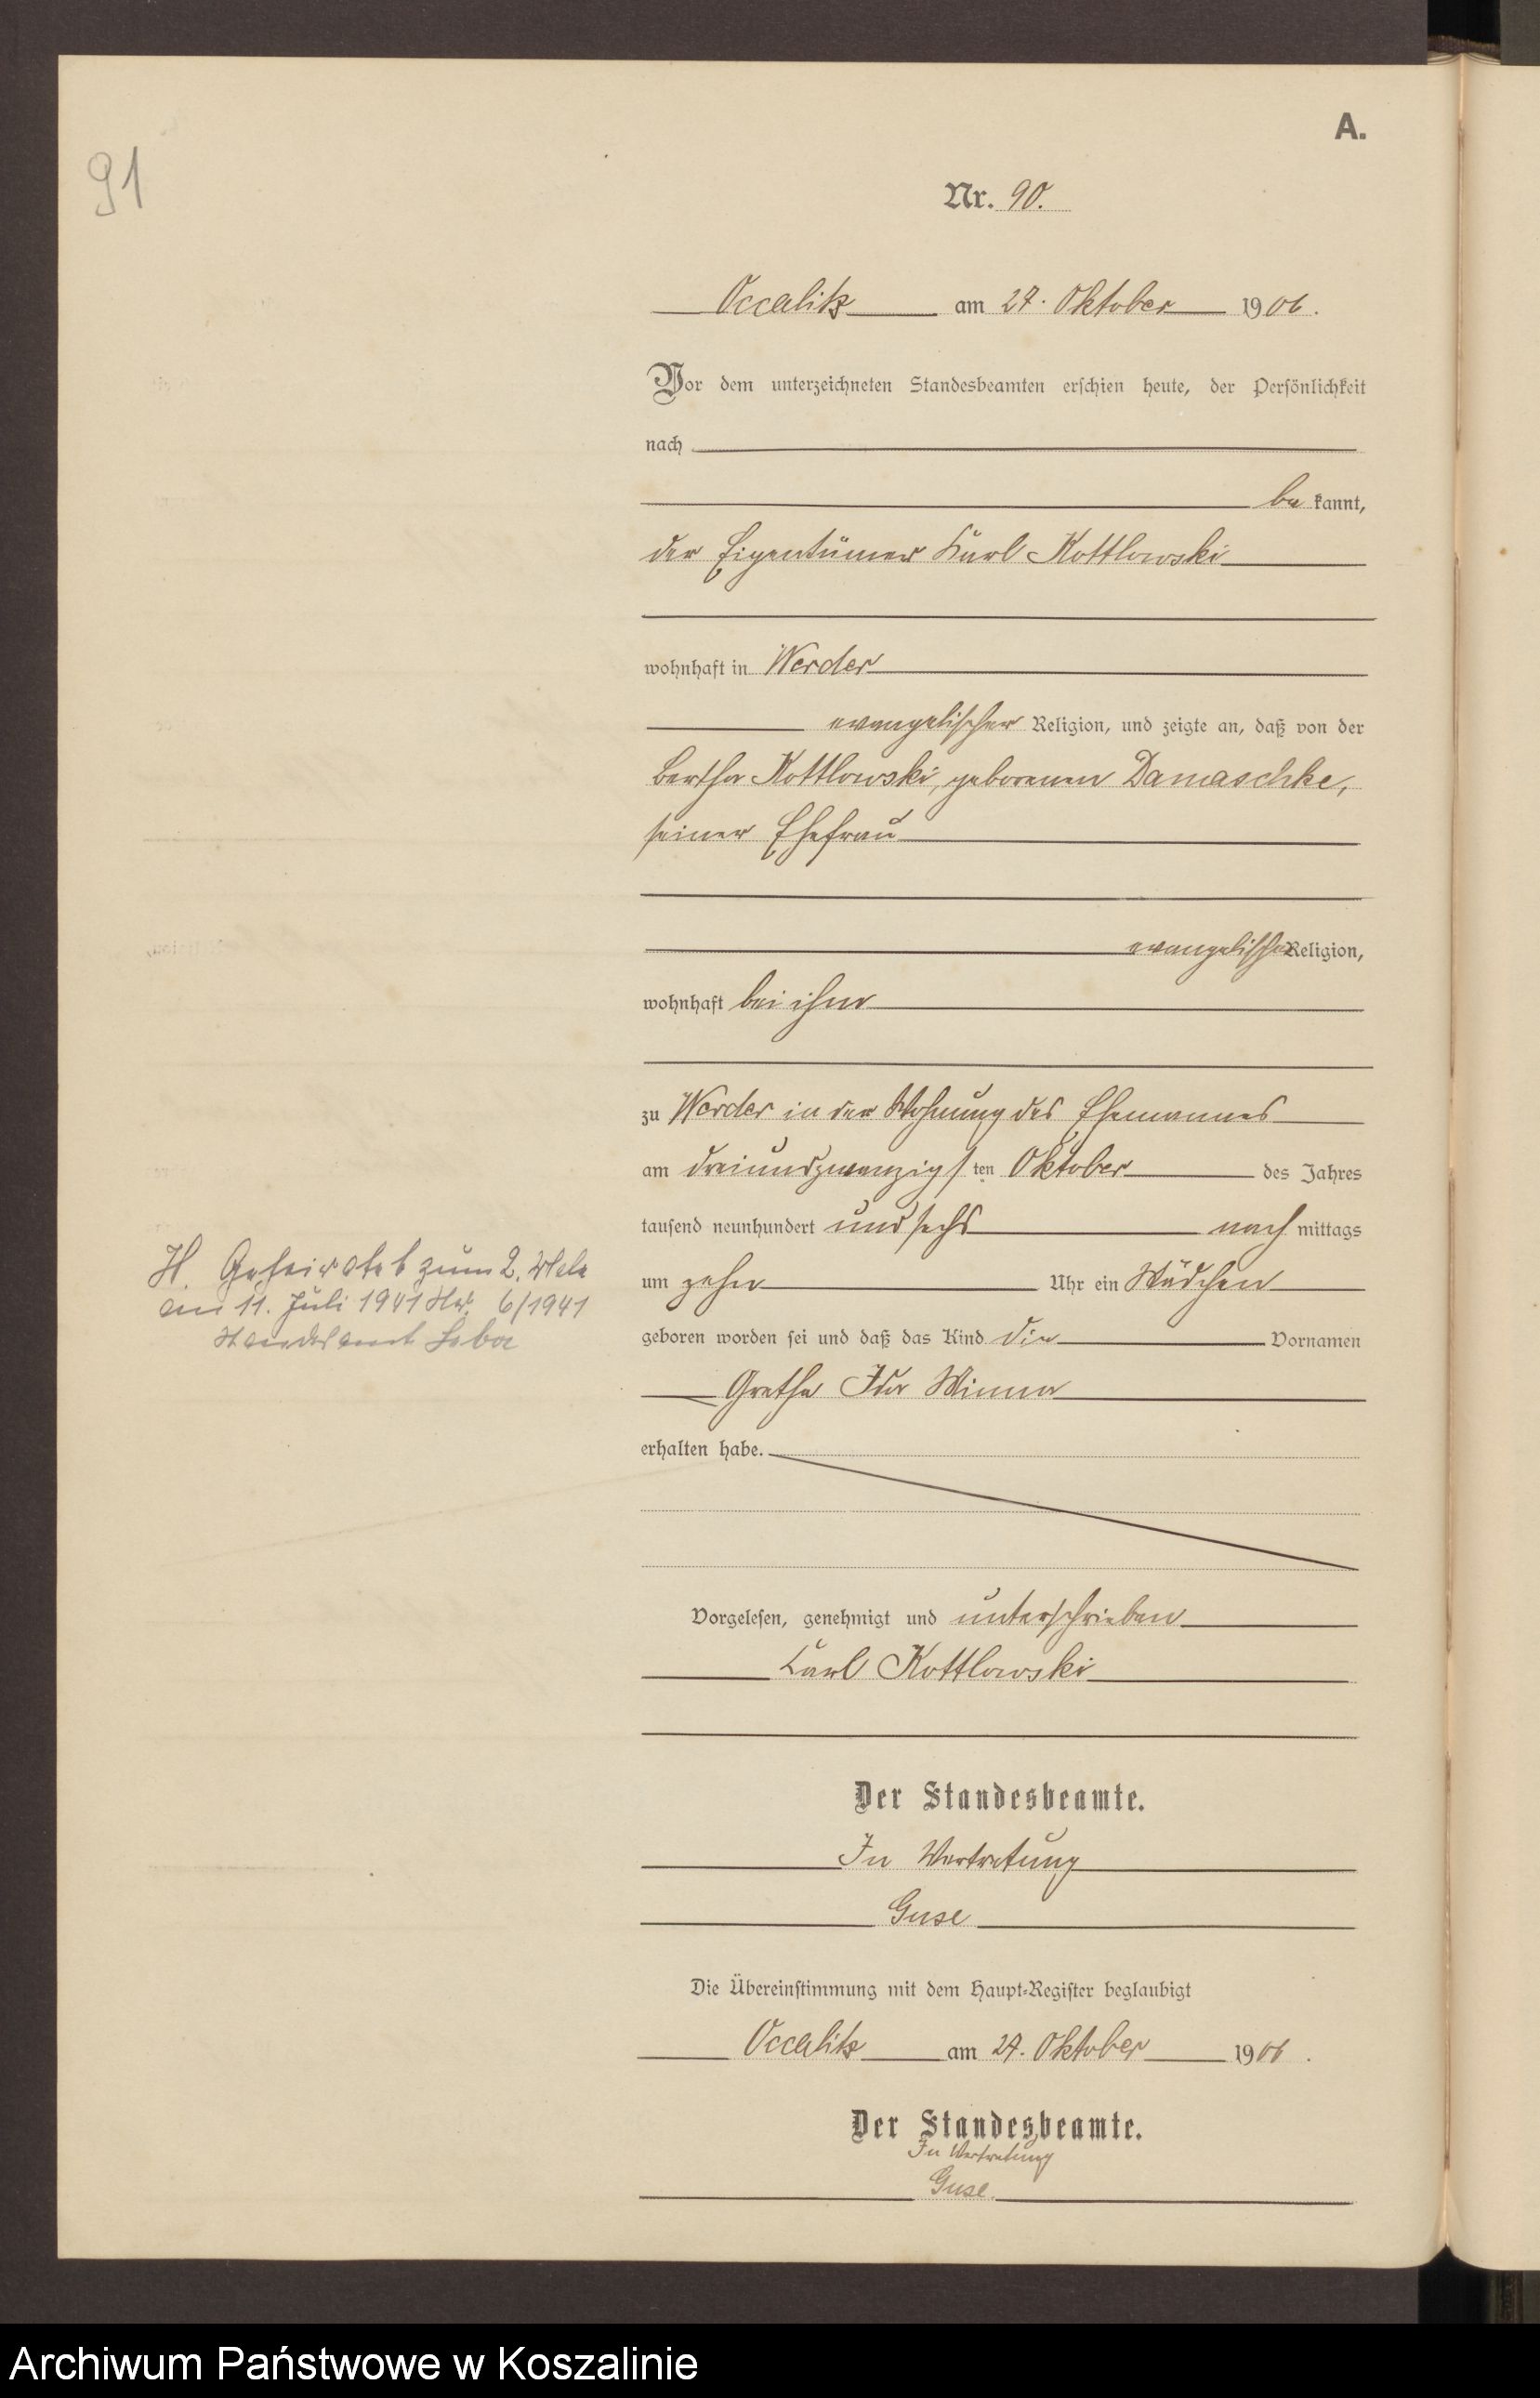 91
A.
Nr. 90.
Occalitz am 27. Oktober 1906.
Vor dem unterzeichneten Standesbeamten erschien heute, der Persönlichkeit
nach
be kannt,
der Eigentümer Karl Kottlowski
wohnhaft in Werder
evangelischer Religion, und zeigte an, daß von der
Bertha Kottlowski, geborenen Damaschke,
seiner Ehefrau
evangelischer Religion,
wohnhaft bei ihm
zu Werder in der Wohnung des Ehemannes
am dreiundzwanzigsten Oktober des Jahres
tausend neunhundert und sechs nach mittags
um zehn Uhr ein Mädchen
H. Geheiratet zum 2. Male
am 11. Juli 1941 Nr. 6/1941
Standesamt Leba
geboren worden sei und daß das Kind die Vornamen
Grethe Ida Minna
erhalten habe.
Vorgelesen, genehmigt und unterschrieben
Karl Kottlowski
Der Standesbeamte.
In Vertretung
Guse
Die Übereinstimmung mit dem Haupt-Register beglaubigt
Occalitz am 27. Oktober 1906.
Der Standesbeamte.
In Vertretung
Guse.
Archiwum Państwowe w Koszalinie